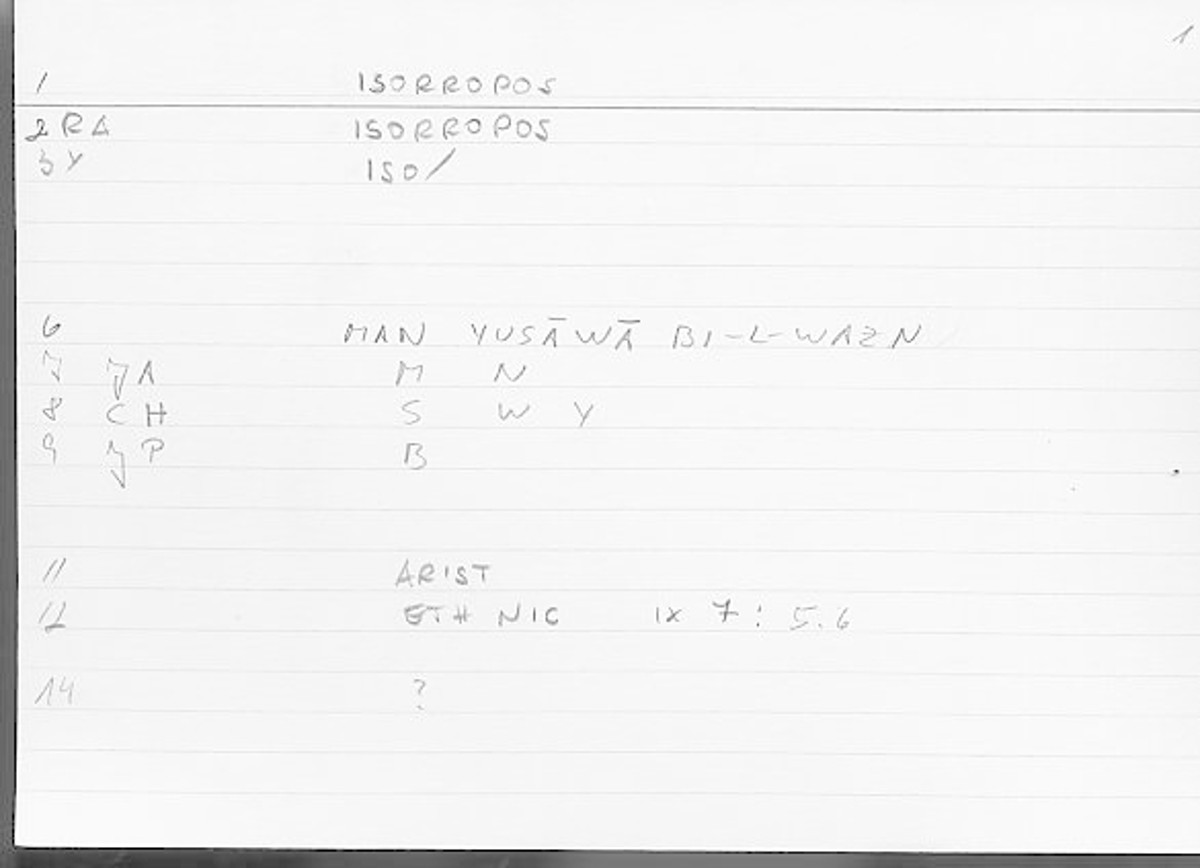 1
1 ISORROPOS
2 RA ISORROPOS
3 Y ISO/
6 MAN YUSĀWĀ BI-L-WAZN
7 JA M N
8 CH S W Y
9 JP B
11 ARIST
12 ETH NIC IX 7: 5.6
14 ?